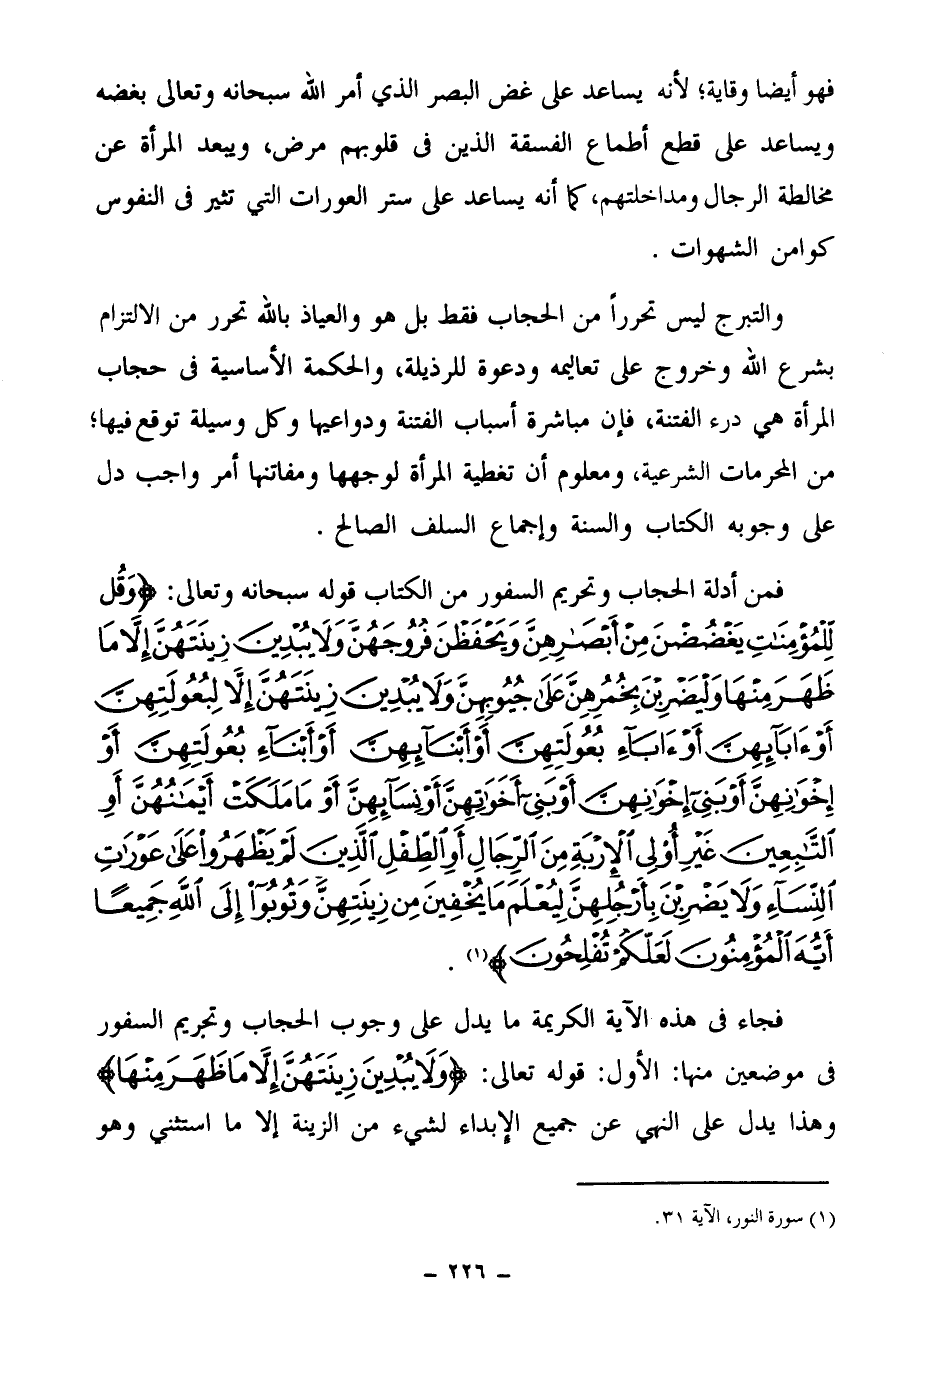 فهو أيضا وقاية؛ لأنه يساعد على غض البصر الذي أمر الله سبحانه وتعالى بغضه
ويساعد على قطع أطماع الفسقة الذين فى قلوبهم مرض، ويبعد المرأة عن
مخالطة الرجال ومداخلتهم، كما أنه يساعد على ستر العورات التي تثير فى النفوس
كوامن الشهوات .
والتبرج ليس تحرراً من الحجاب فقط بل هو والعياذ بالله تحرر من الالتزام
بشرع الله وخروج على تعاليمه ودعوة للرذيلة، والحكمة الأساسية فى حجاب
المرأة هي درء الفتنة، فإن مباشرة أسباب الفتنة ودواعيها وكل وسيلة توقع فيها؛
من المحرمات الشرعية، ومعلوم أن تغطية المرأة لوجهها ومفاتنها أمر واجب دل
على وجوبه الكتاب والسنة وإجماع السلف الصالح .
فمن أدلة الحجاب وتحريم السفور من الكتاب قوله سبحانه وتعالى: ﴿وَقُل
لِّلْمُؤْمِنَٰتِ يَغْضُضْنَ مِنْ أَبْصَٰرِهِنَّ وَيَحْفَظْنَ فُرُوجَهُنَّ وَلَا يُبْدِينَ زِينَتَهُنَّ إِلَّا مَا
ظَهَرَ مِنْهَا وَلْيَضْرِبْنَ بِخُمُرِهِنَّ عَلَىٰ جُيُوبِهِنَّ وَلَا يُبْدِينَ زِينَتَهُنَّ إِلَّا لِبُعُولَتِهِنَّ
أَوْ ءَابَآئِهِنَّ أَوْ ءَابَآءِ بُعُولَتِهِنَّ أَوْ أَبْنَآئِهِنَّ أَوْ أَبْنَآءِ بُعُولَتِهِنَّ أَوْ
إِخْوَٰنِهِنَّ أَوْ بَنِىٓ إِخْوَٰنِهِنَّ أَوْ بَنِىٓ أَخَوَٰتِهِنَّ أَوْ نِسَآئِهِنَّ أَوْ مَا مَلَكَتْ أَيْمَٰنُهُنَّ أَوِ
ٱلتَّٰبِعِينَ غَيْرِ أُوْلِى ٱلْإِرْبَةِ مِنَ ٱلرِّجَالِ أَوِ ٱلطِّفْلِ ٱلَّذِينَ لَمْ يَظْهَرُواْ عَلَىٰ عَوْرَٰتِ
ٱلنِّسَآءِ وَلَا يَضْرِبْنَ بِأَرْجُلِهِنَّ لِيُعْلَمَ مَا يُخْفِينَ مِن زِينَتِهِنَّ وَتُوبُوٓاْ إِلَى ٱللَّهِ جَمِيعًا
أَيُّهَ ٱلْمُؤْمِنُونَ لَعَلَّكُمْ تُفْلِحُونَ﴾(١) .
فجاء فى هذه الآية الكريمة ما يدل على وجوب الحجاب وتحريم السفور
فى موضعين منها: الأول: قوله تعالى: ﴿وَلَا يُبْدِينَ زِينَتَهُنَّ إِلَّا مَا ظَهَرَ مِنْهَا﴾
وهذا يدل على النهي عن جميع الإبداء لشيء من الزينة إلا ما استثني وهو
(١) سورة النور، الآية ٣١.
– ٢٢٦ –